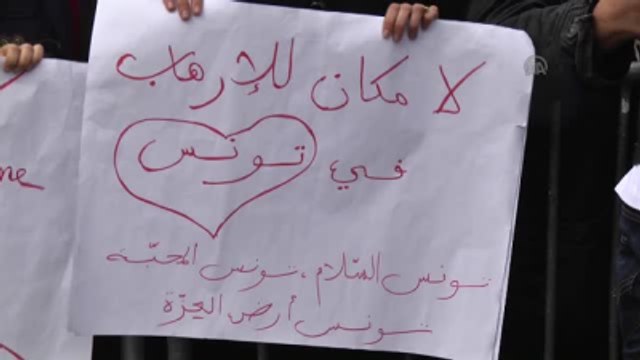 لا مكان للإرهاب
في تونس
تونس السّلام، تونس المحبّة
تونس أرض العزّة